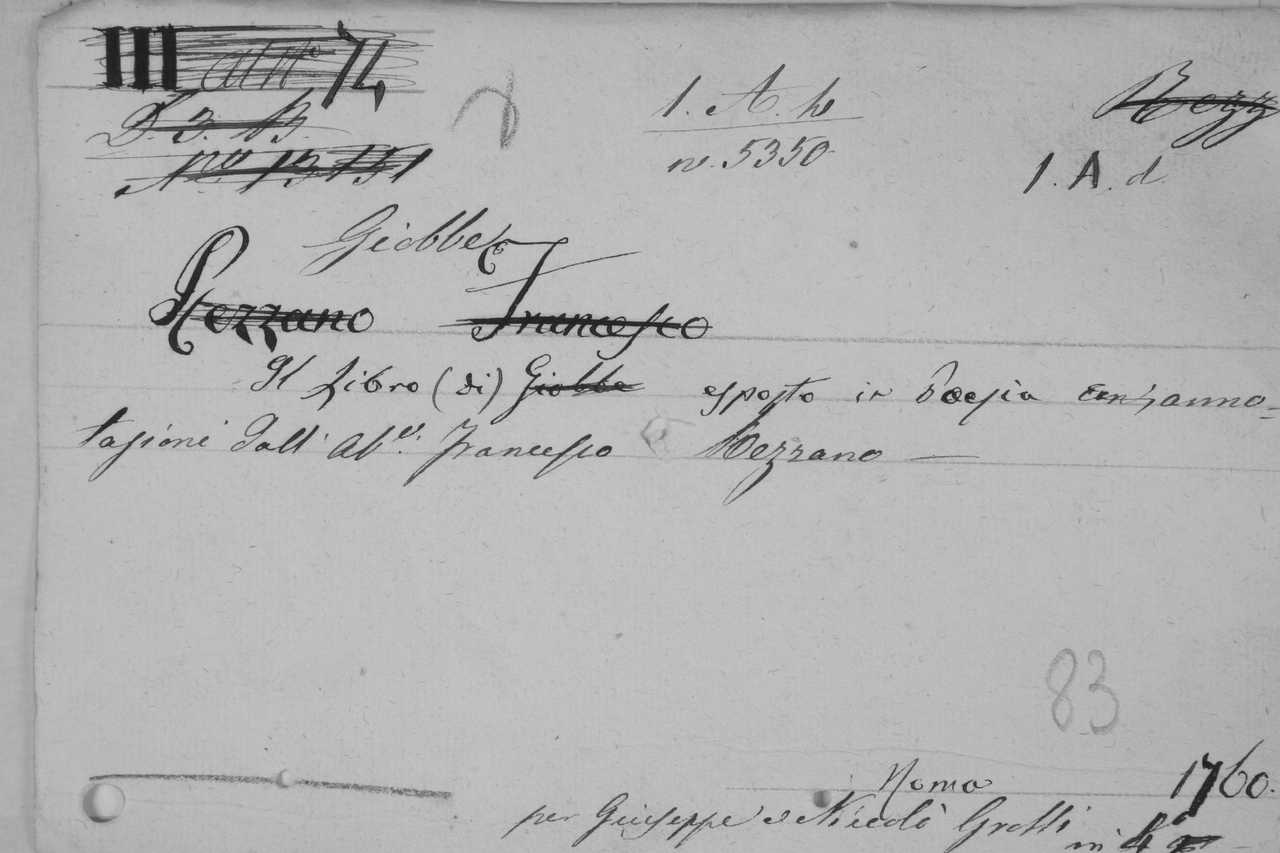 III 74
I. 3. B.
N.º 13151
1. A. h
n. 5350
Rezz
1. A. d
Giobbe
Rezzano Francesco
Il Libro (di) Giobbe esposto in Poesia con anno-
tazioni dall' Ab.e Francesco Rezzano —
83
Roma 1760.
per Giuseppe e Niccolò Grossi
in 4º